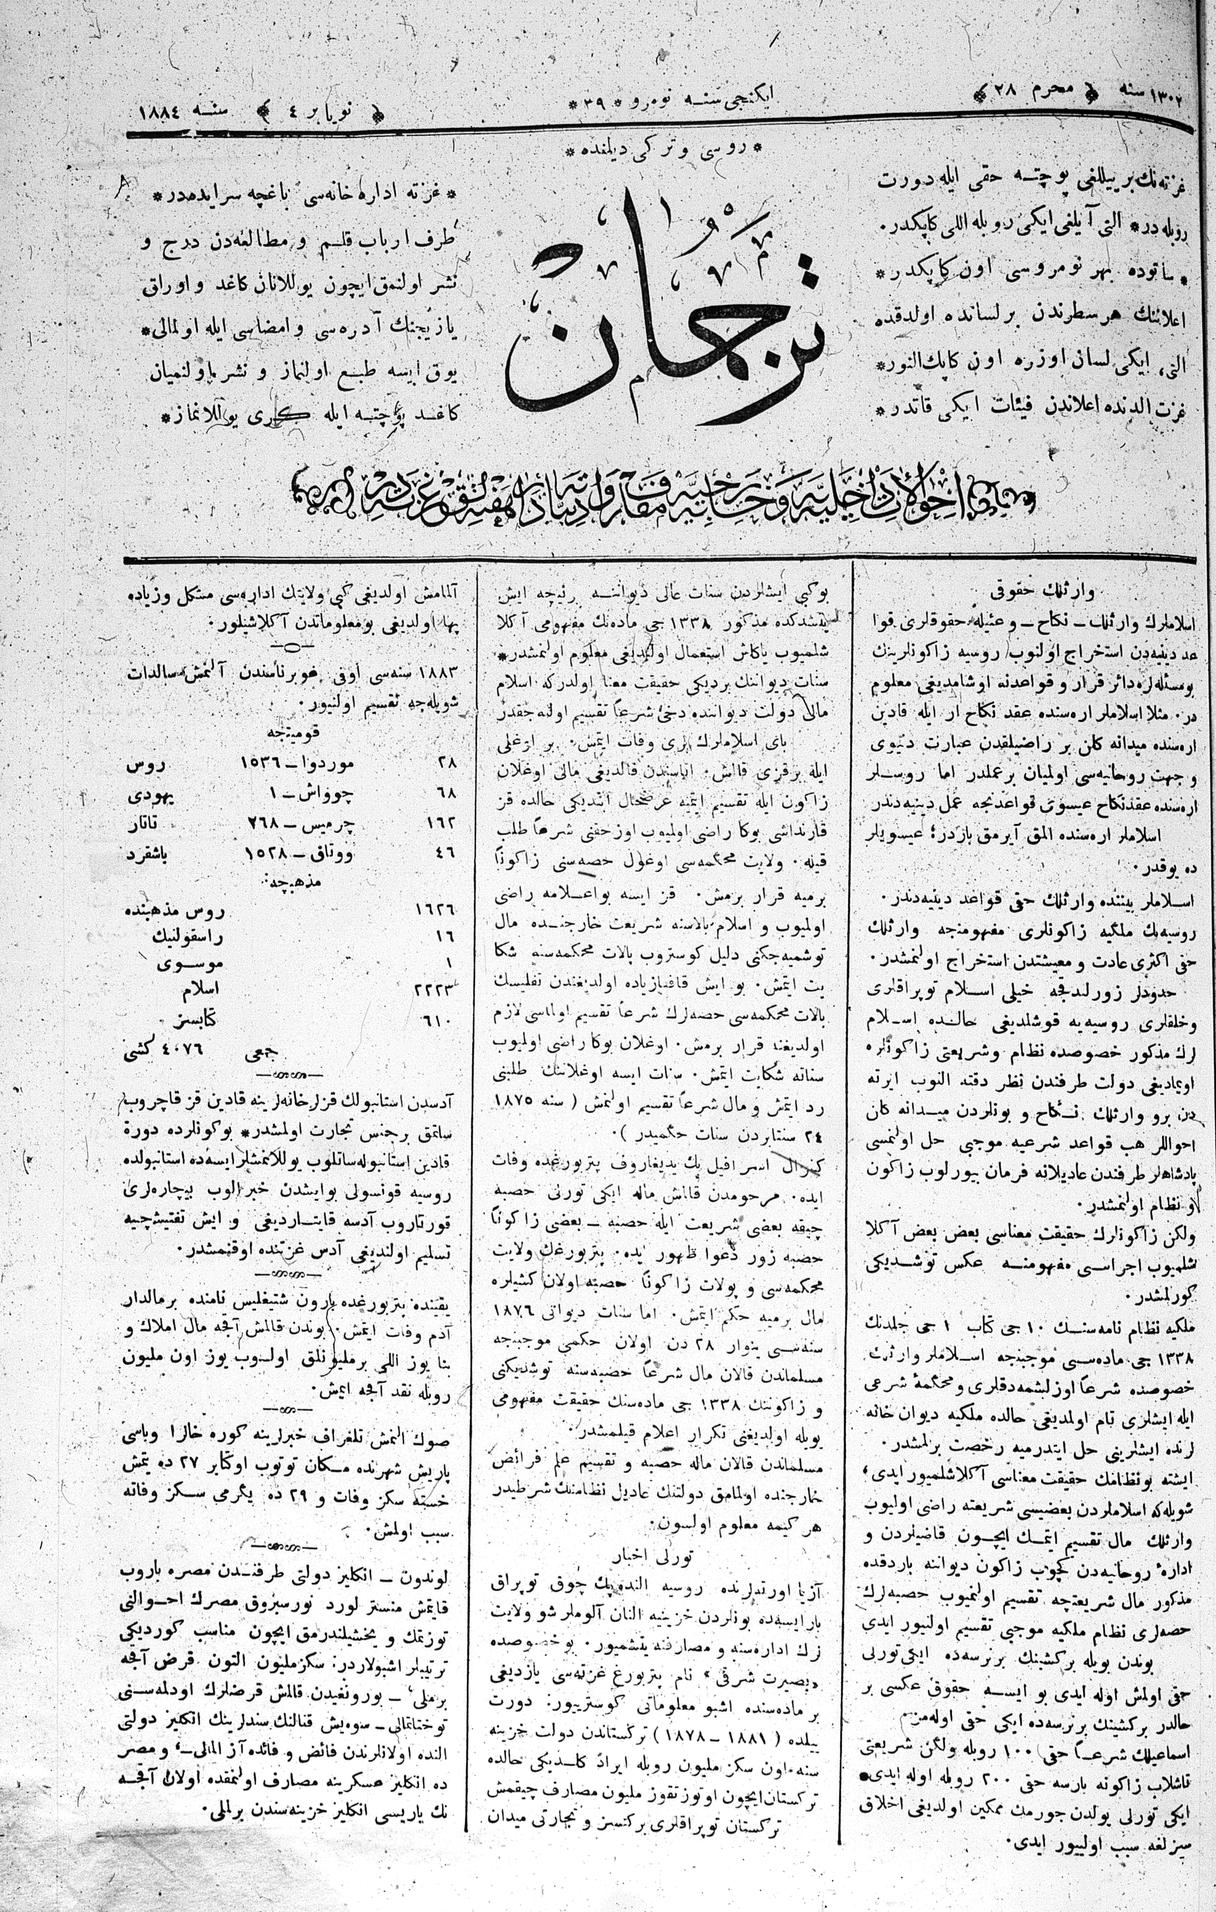 ١٣٠٢ سنه ﴿ محرم ٢٨ ﴾
ایكنجی سنه نومرو * ٣٩ *
﴿ نویابر ٤ ﴾ سنه ١٨٨٤
* روسی و تركی دیلنده *
غزته‌نك بر ییللغی پوچتـه حقی ایله دورت
روبله در* التی آیلغی ایكی روبله اللی كاپكدر.
* ساتوده بهر نومروسی اون كاپكدر *
اعلاننك هر سطرندن بر لسانده اولدقده
التی، ایكی لسان اوزره اون كاپك النور*
غزت الدنده اعلاندن فیئات ایكی قاتدر*
ترجمان
* غزته اداره خانه‌سی باغچه سرایده‌در*
طرف ارباب قلـم و مطالعه‌دن درج و
نشر اولنمق ایچون یوللانان كاغد و اوراق
یازیجنك آدره‌سی و امضاسی ایله اولمالی*
یوق ایسه طبـع اولنماز و نشر اولنمیان
كاغـد پوچتـه ایله كاری یوللانماز*
وارثلك حقوقی
اسلامارك وارثلك ـ نكاح ـ و عئیله حقوقلری قوا
عد دینیه‌دن استخراج اولنوب روسیه زاكونلرینك
بو مسئله‌لره دائر قرار و قواعدنه اوشامدیغی معلوم
در. مثلا اسلاملر اره‌سنده عقد نكاح ار ایله قادین
اره‌سنده میدانه كلن بر راضیلقدن عبارت دنیوی
و جهت روحانیه‌سی اولمیان بر عملدر اما روسـلر
اره‌سنده عقد نكاح عیسوی قواعدنجه عمل دینیه‌دندر
اسلاملر اره‌سنده المق آیرمق باردر؛ عیسویلر
ده یوقدر.
اسـلاملر بیننده وارثلك حقی قواعد دینیه‌دندر.
روسیه‌نك ملكیه زاكونلری مفهومنجه وارثلك
حقی اكثری عادت و معیشتدن استخراج اولنمشدر.
حدودلر زورلندقجه خیلی اسـلام توپراقلری
و خلقلری روسیه‌یه قوشلدیغی حالـنده اسـلام
لرك مذكور خصوصده نظام و شریعتی زاكونلره
اویمادیغی دولت طرفندن نظر دقته النوب ایرته
دن برو وارثلك نـكاح و بونلردن میـدانه كلن
احواللر هب قواعد شرعیه موجبی حل اولنمسی
پادشاهلر طرفندن عادیلانه فرمان بیورلوب زاكون
و نظام اولنمشدر.
ولكن زاكونلرك حقیقت معناسی بعض بعض آكلا
شلمیوب اجراسـی مفهومنـه عكس توشـدیكی
كورلمشدر.
ملكیه نظام نامه‌سنـك ١٠ جی كتاب ١ جی جلدنك
١٣٣٨ جی ماده‌سـی موجبنجه اسـلاملر وارثلك
خصوصده شرعاً اوزلشمه‌دقلری و محكمهٔ شرعی
ایله ایشلری تام اولمدیغی حالده ملكیه دیوان خانه
لرنده ایشلرینی حل ایتدرمیه رخصت برلمشدر.
ایشته بو نظامك حقیقت معناسی آكلاشلمیور ایدی؛
شویله‌كه اسلاملردن بعضیسی شریعته راضی اولمیوب
وارثلك مال تقسیم ایتمـك ایچـون قاضیلردن و
ادارهٔ روحانیه‌دن كچوب زاكون دیواننه باردقده
مذكور مال شریعتچه تقسیم اولنمیوب حصه‌لرك
حصه‌لری نظام ملكیه موجبی تقسیم اولنیور ایدی
بوندن بویله بر كشینك بر نرسه‌ده ایكی تورلی
حقی اولمش اوله ایدی بو ایسـه حقوق عكسی بر
حالدر بر كشینك بر نرسه‌ده ایكی حقی اوله‌مز.
اسماعیلك شرعـاً حقی ١٠٠ روبله ولكن شریعتی
تاشلاب زاكونه بارسه حقی ٢٠٠ روبله اوله ایدی*
ایكی تورلی یولدن جورمك ممكین اولدیغی اخلاق
سزلغه سبب اولییور ایدی.
بو كبی ایشلردن سنات عالی دیواننـه رئیچه ایش
یتشدكده مذكور ١٣٣٨ جی ماده‌نك مفهومی آكلا
شلمیوب یاكلش استعمال اولندیغی معلوم اولنمشدر*
سنات دیواننك بردیكی حقیقت معنا اولدركه اسلام
مالی دولت دیواننده دخی شرعاً تقسیم اولنه جقدر
بای اسلاملرك بری وفات ایتمش. بر اوغلی
ایله بر قزی قالش. اناسندن قالدیغی مالی اوغلان
زاكون ایله تقسیم ایتمیه عرضحال ایتدیكی حالده قز
قارنداشی بوكا راضی اولمیوب اوز حقنی شرعاً طلب
قیله. ولایت محكمه‌سی اوغول حصه‌سنی زاكوناً
برمیه قرار برمش. قز ایسه بو اعلامه راضی
اولمیوب و اسلام بالاسنه شریعت خارجنـده مال
توشمیه‌جكنی دلیل كوستروب پالات محكمه‌سنه شكا
یت ایتمش. بو ایش قافقازیاده اولدیغندن تفلیسك
پالات محكمه‌سی حصه‌لرك شرعاً تقسیم اولماسی لازم
اولدیغنه قرار برمش. اوغلان بوكا راضی اولمیوب
سناته شكایت ایتمش. سنات ایسه اوغلاننك طلبنی
رد ایتمش و مال شرعاً تقسیم اولنمش ( سنه ١٨٧٥
٢٤ سنتابردن سنات حكمیدر ).
كنرال اسرافیل بك یدیغاروف پتربورغده وفات
ایده. مرحومدن قالمش ماله ایكی تورلی حصبه
چیقه بعضی شریعت ایله حصبه ـ بعضی زاكوناً
حصبه زور دعوا ظهور ایده. پتربورغك ولایت
محكمه‌سی و پولات زاكوناً حصبه اولان كشیلره
مال برمیه حكم ایتمش. اما سنات دیوانی ١٨٧٦
سنه‌سـی ینوار ٢٨ دن اولان حكمی موجبنجه
مسلماندن قالان مال شرعاً حصبه‌سنه توشدیكنی
و زاكوننك ١٣٣٨ جی ماده‌سنك حقیقت مفهومی
بویله اولدیغنی تكرار اعلام قیلمشدر.
مسلماندن قالان ماله حصبه و تقسیم علم فرائض
خارجنده اولمامق دولتنك عادیل نظامنك شرطیدر
هر كیمه معلوم اولسون.
تورلی اخبار
آزیا اورته‌لرنده روسیه النده پك چوق توپراق
بار ایسه‌ده بونلردن خزینیه النان آلوملر شو ولایت
لرك اداره‌سنه و مصارفنه یتشمیور. بو خصوصده
«بصیرت شرقی» نام پتربورغ غزته‌سی یازدیغی
بر ماده‌سنده اشبو معلوماتی كوستریبور: دورت
ییلده ( ١٨٨١ ـ ١٨٧٨ ) تركستاندن دولت خزینه
سنه اون سكز ملیون روبله ایراد كلـدیكی حالده
تركستان ایچون اوتوز تقوز ملیون مصارف چیقمش
تركستان توپراقلری بركتسز و تجارتی میدان
آلمامش اولدیغی كبی ولایتك اداره‌سی مشكل و زیاده
پها اولدیغی بو معلوماتدن آكلاشیلور.
١٨٨٣ سنه‌سی اوفی غوبرناسندن آلنمش سالدات
شویله‌جه تقسیم اولنیور.
قومیتجه
٢٨ موردوا ـ ١٥٣٦ روس
٦٨ چوواش ـ ١ یهودی
١٦٢ چرمیس ـ ٢٦٨ تاتار
٤٦ ووتاق ـ ١٥٢٨ باشقرد
مذهبچه:
١٦٢٦ روس مذهبنده
١٦ راسقولنیك
١ موسـوی
٢٢٢٣ اسلام
٦١٠ كتابسز
جمعی ٤٠٧٦ كشی
آدسدن استانبولك قزلرخانه‌لرینه قادین قز قاچروب
ساتمق بر جنس تجارت اولمشدر* بو كونلرده دورة
قادین استانبوله ساتلوب یوللانمشلر ایسه‌ده استانبولده
روسیه قونسولی بو ایشدن خبر الوب بیچاره‌لری
قورتاروب آدسه قایتـاردیغی و ایش تفتیشچیه
تسلیم اولندیغی آدس غزتنده اوقنمشدر.
یقینده پتربورغده بارون شتیغلیس نامنده بر مالدار
آدم وفات ایتمش. بوندن قالمش آقچه مال املاك و
بنا یوز اللی بر ملیونلق اولـوب یوز اون ملیون
روبله نقد آقچه ایمش.
صوك النمش تلغراف خبرلرینه كوره خالرا وباسی
پاریش شهرنده مـكان توتوب اوكتابر ٢٧ ده یتمش
خسته سكز وفات و ٢٩ ده یگرمی سـكز وفاته
سبب اولمش.
لوندون ـ انكلیز دولتی طرفنـدن مصره باروب
قایتمش منستر لورد نورسبروق مصرك احـوالنی
توزتمك و یخشیلندرمق ایچون مناسب كوردیكی
ترتیبلر اشبولاردر: سكز ملیون التون قرض آقچه
برملی ـ بورونغیدن قالمش قرضلرك اودلمه‌سـنی
توختاتمالی ـ سویش قنالنك سندلرینك انكلیز دولتی
النده اولانلرندن فائض و فائده آز المالی ـ و مصر
ده انكلیز عسكرینه مصارف اولنمقده اولان آقچـه
نك یاریسی انكلیز خزینه‌سندن برلملی.